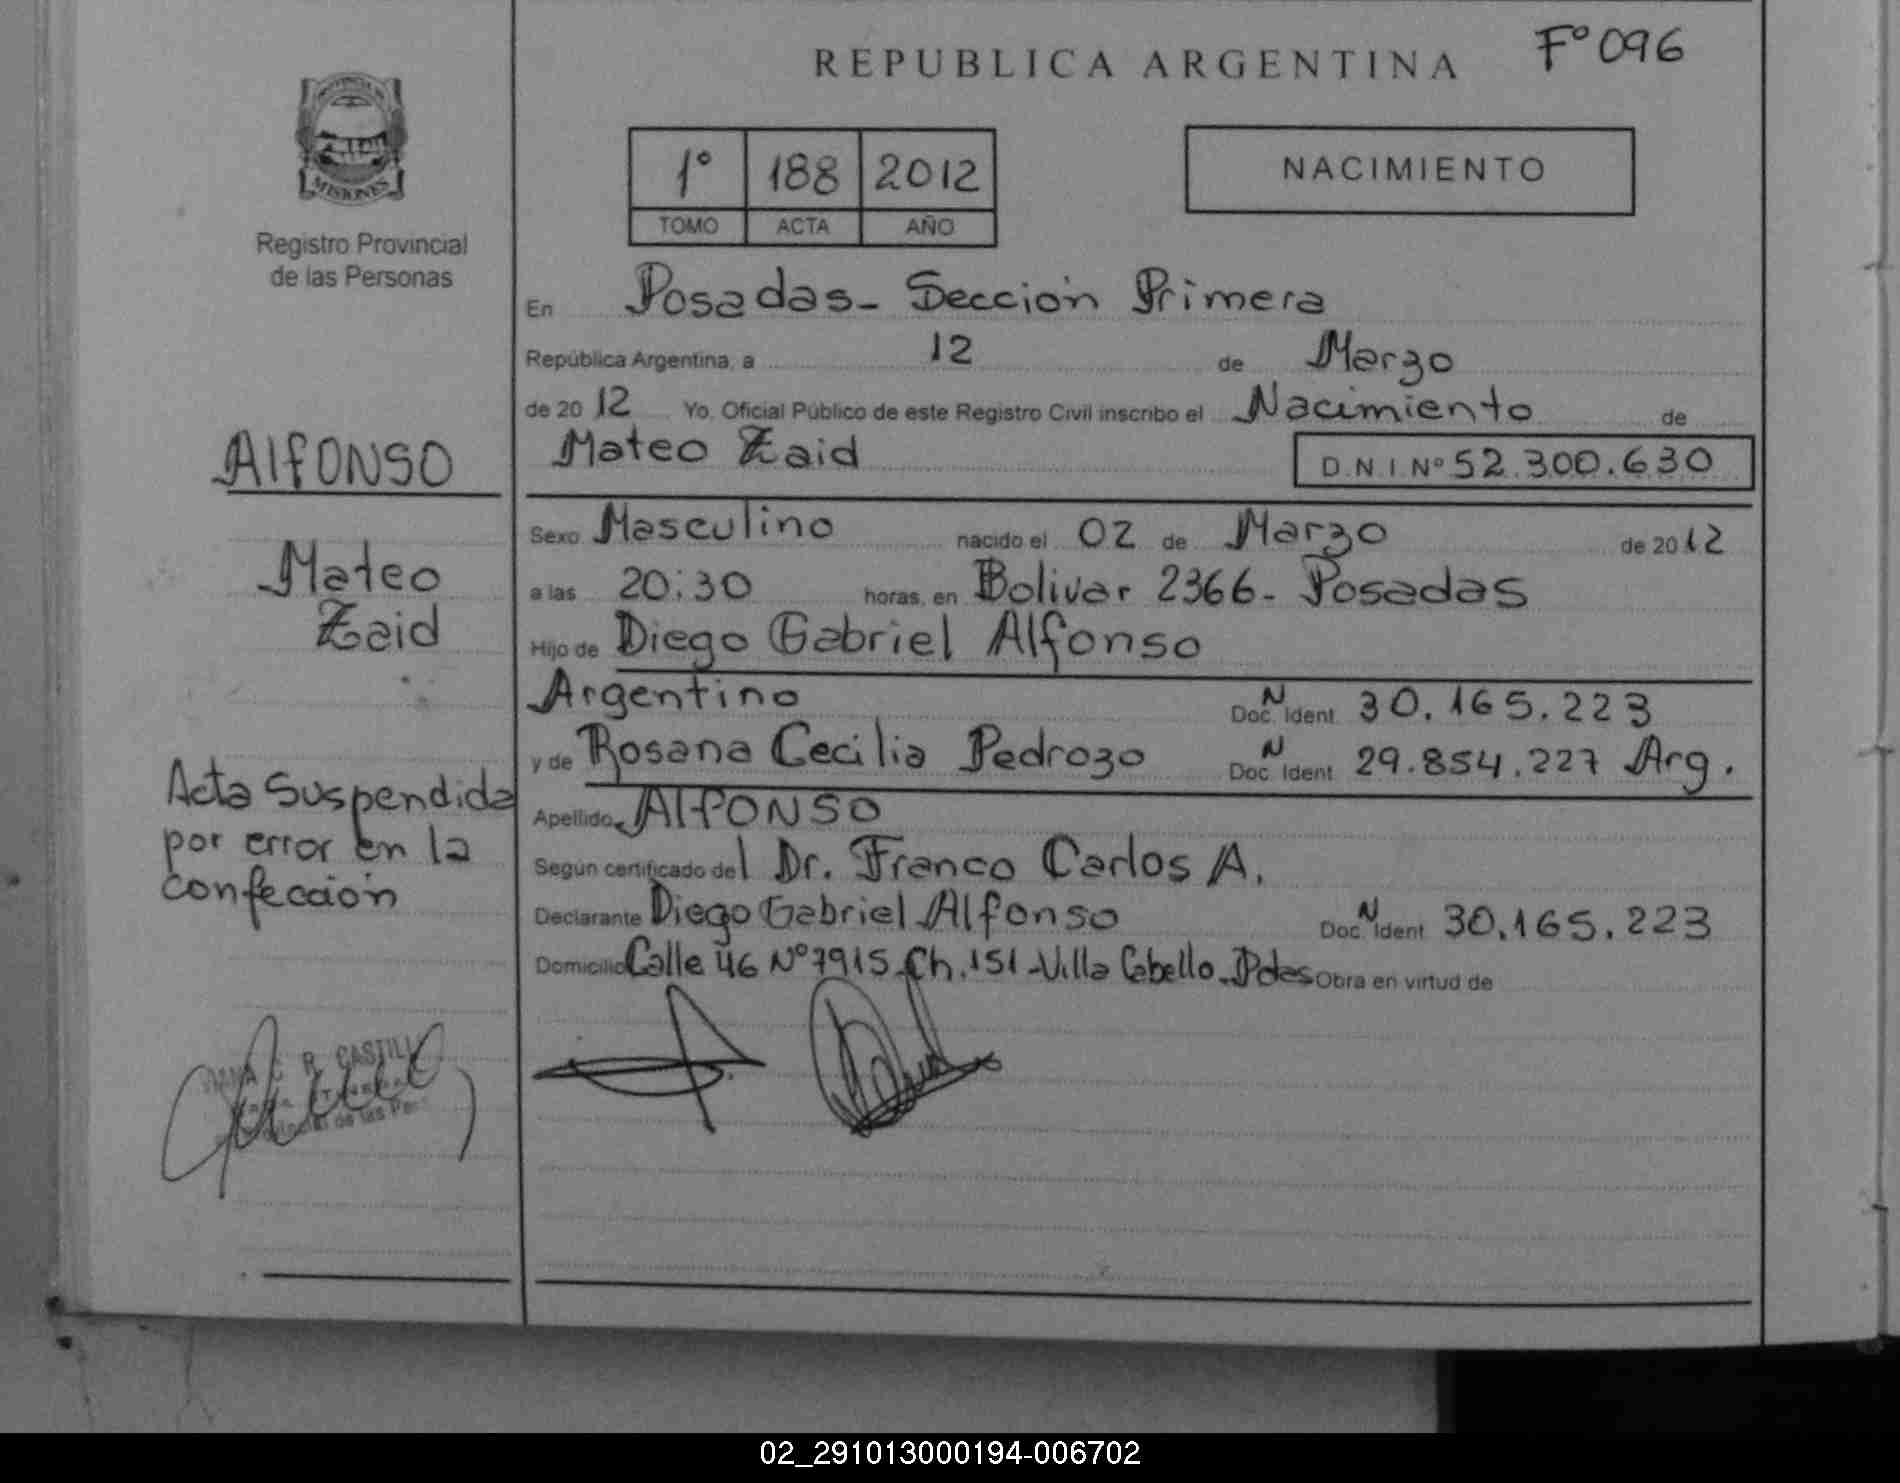 REPUBLICA ARGENTINA
Fº 096
PROVINCIA DE
MISIONES
Registro Provincial
de las Personas
1º 188 2012
TOMO ACTA AÑO
NACIMIENTO
En Posadas - Sección Primera
República Argentina, a 12 de Marzo
de 2012 Yo, Oficial Público de este Registro Civil inscribo el Nacimiento de
Mateo Zaid D.N.I. Nº 52.300.630
Sexo Masculino nacido el 02 de Marzo de 2012
a las 20:30 horas, en Bolivar 2366 - Posadas
Hijo de Diego Gabriel Alfonso
Argentino Doc. N Ident. 30.165.223
y de Rosana Cecilia Pedrozo Doc. N Ident. 29.854.227 Arg.
Apellido ALfONSO
Según certificado del Dr. Franco Carlos A.
Declarante Diego Gabriel Alfonso Doc. N Ident. 30.165.223
Domicilio Calle 46 Nº 7915 - Ch. 151 - Villa Cabello - Pdas Obra en virtud de
AlfONSO
Mateo
Zaid
Acta Suspendida
por error en la
confección
R. CASTILL
de las Per
02_291013000194-006702